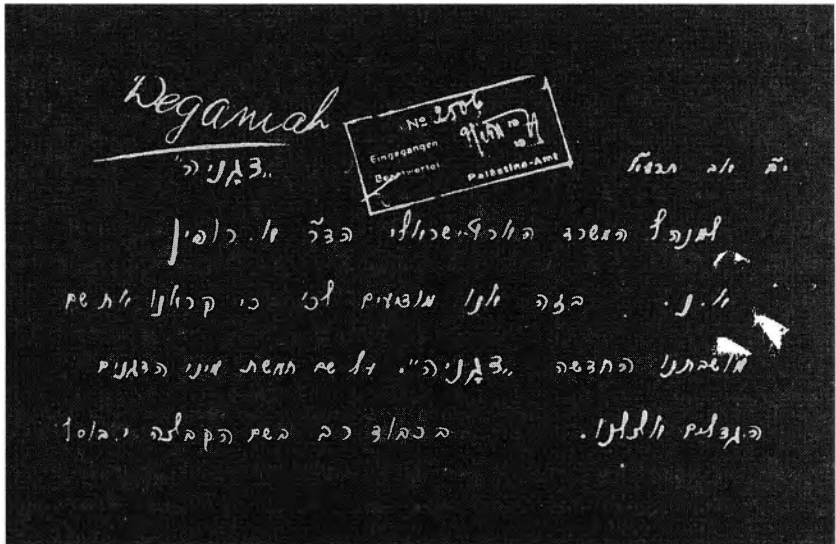 Deganiah
№ 2506
Eingegangen
Beantwortet
Palästina-Amt
אב
„דגניה"
למנהל המשרד הארץ-ישראלי הד"ר א. רופין
א.נ. בזה אנו מודיעים לכ' כי קראנו את שם
מושבתנו החדשה „דגניה". על שם חמשת מיני הדגנים
הגדלים אצלנו. בכבוד רב בשם הקבוצה י. בוסל